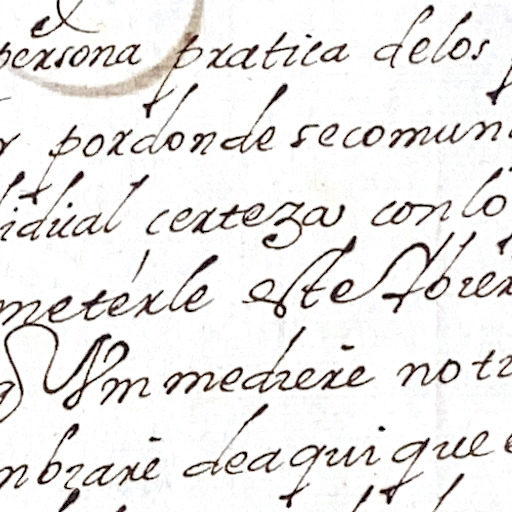 persona pratica delos
pordonde secomun
idual certeza conlo
meterle este
Vm mediere noti
mbrare deaqui que